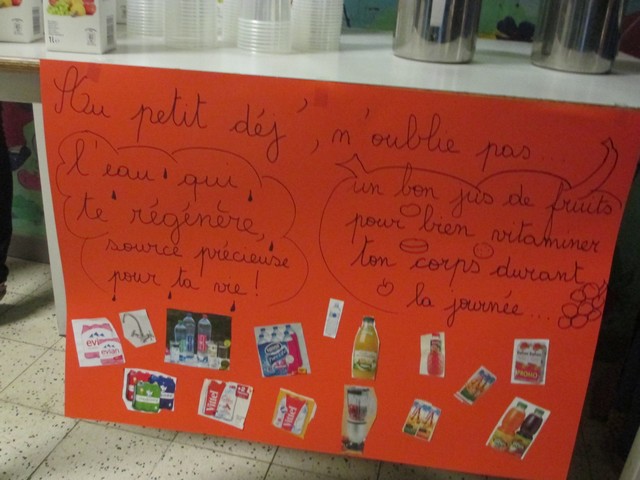 Au petit déj', n'oublie pas...
l'eau qui
te régénère,
source précieuse
pour ta vie !
un bon jus de fruits
pour bien vitaminer
ton corps durant
la journée...
evian
evian
Vittel
Vittel